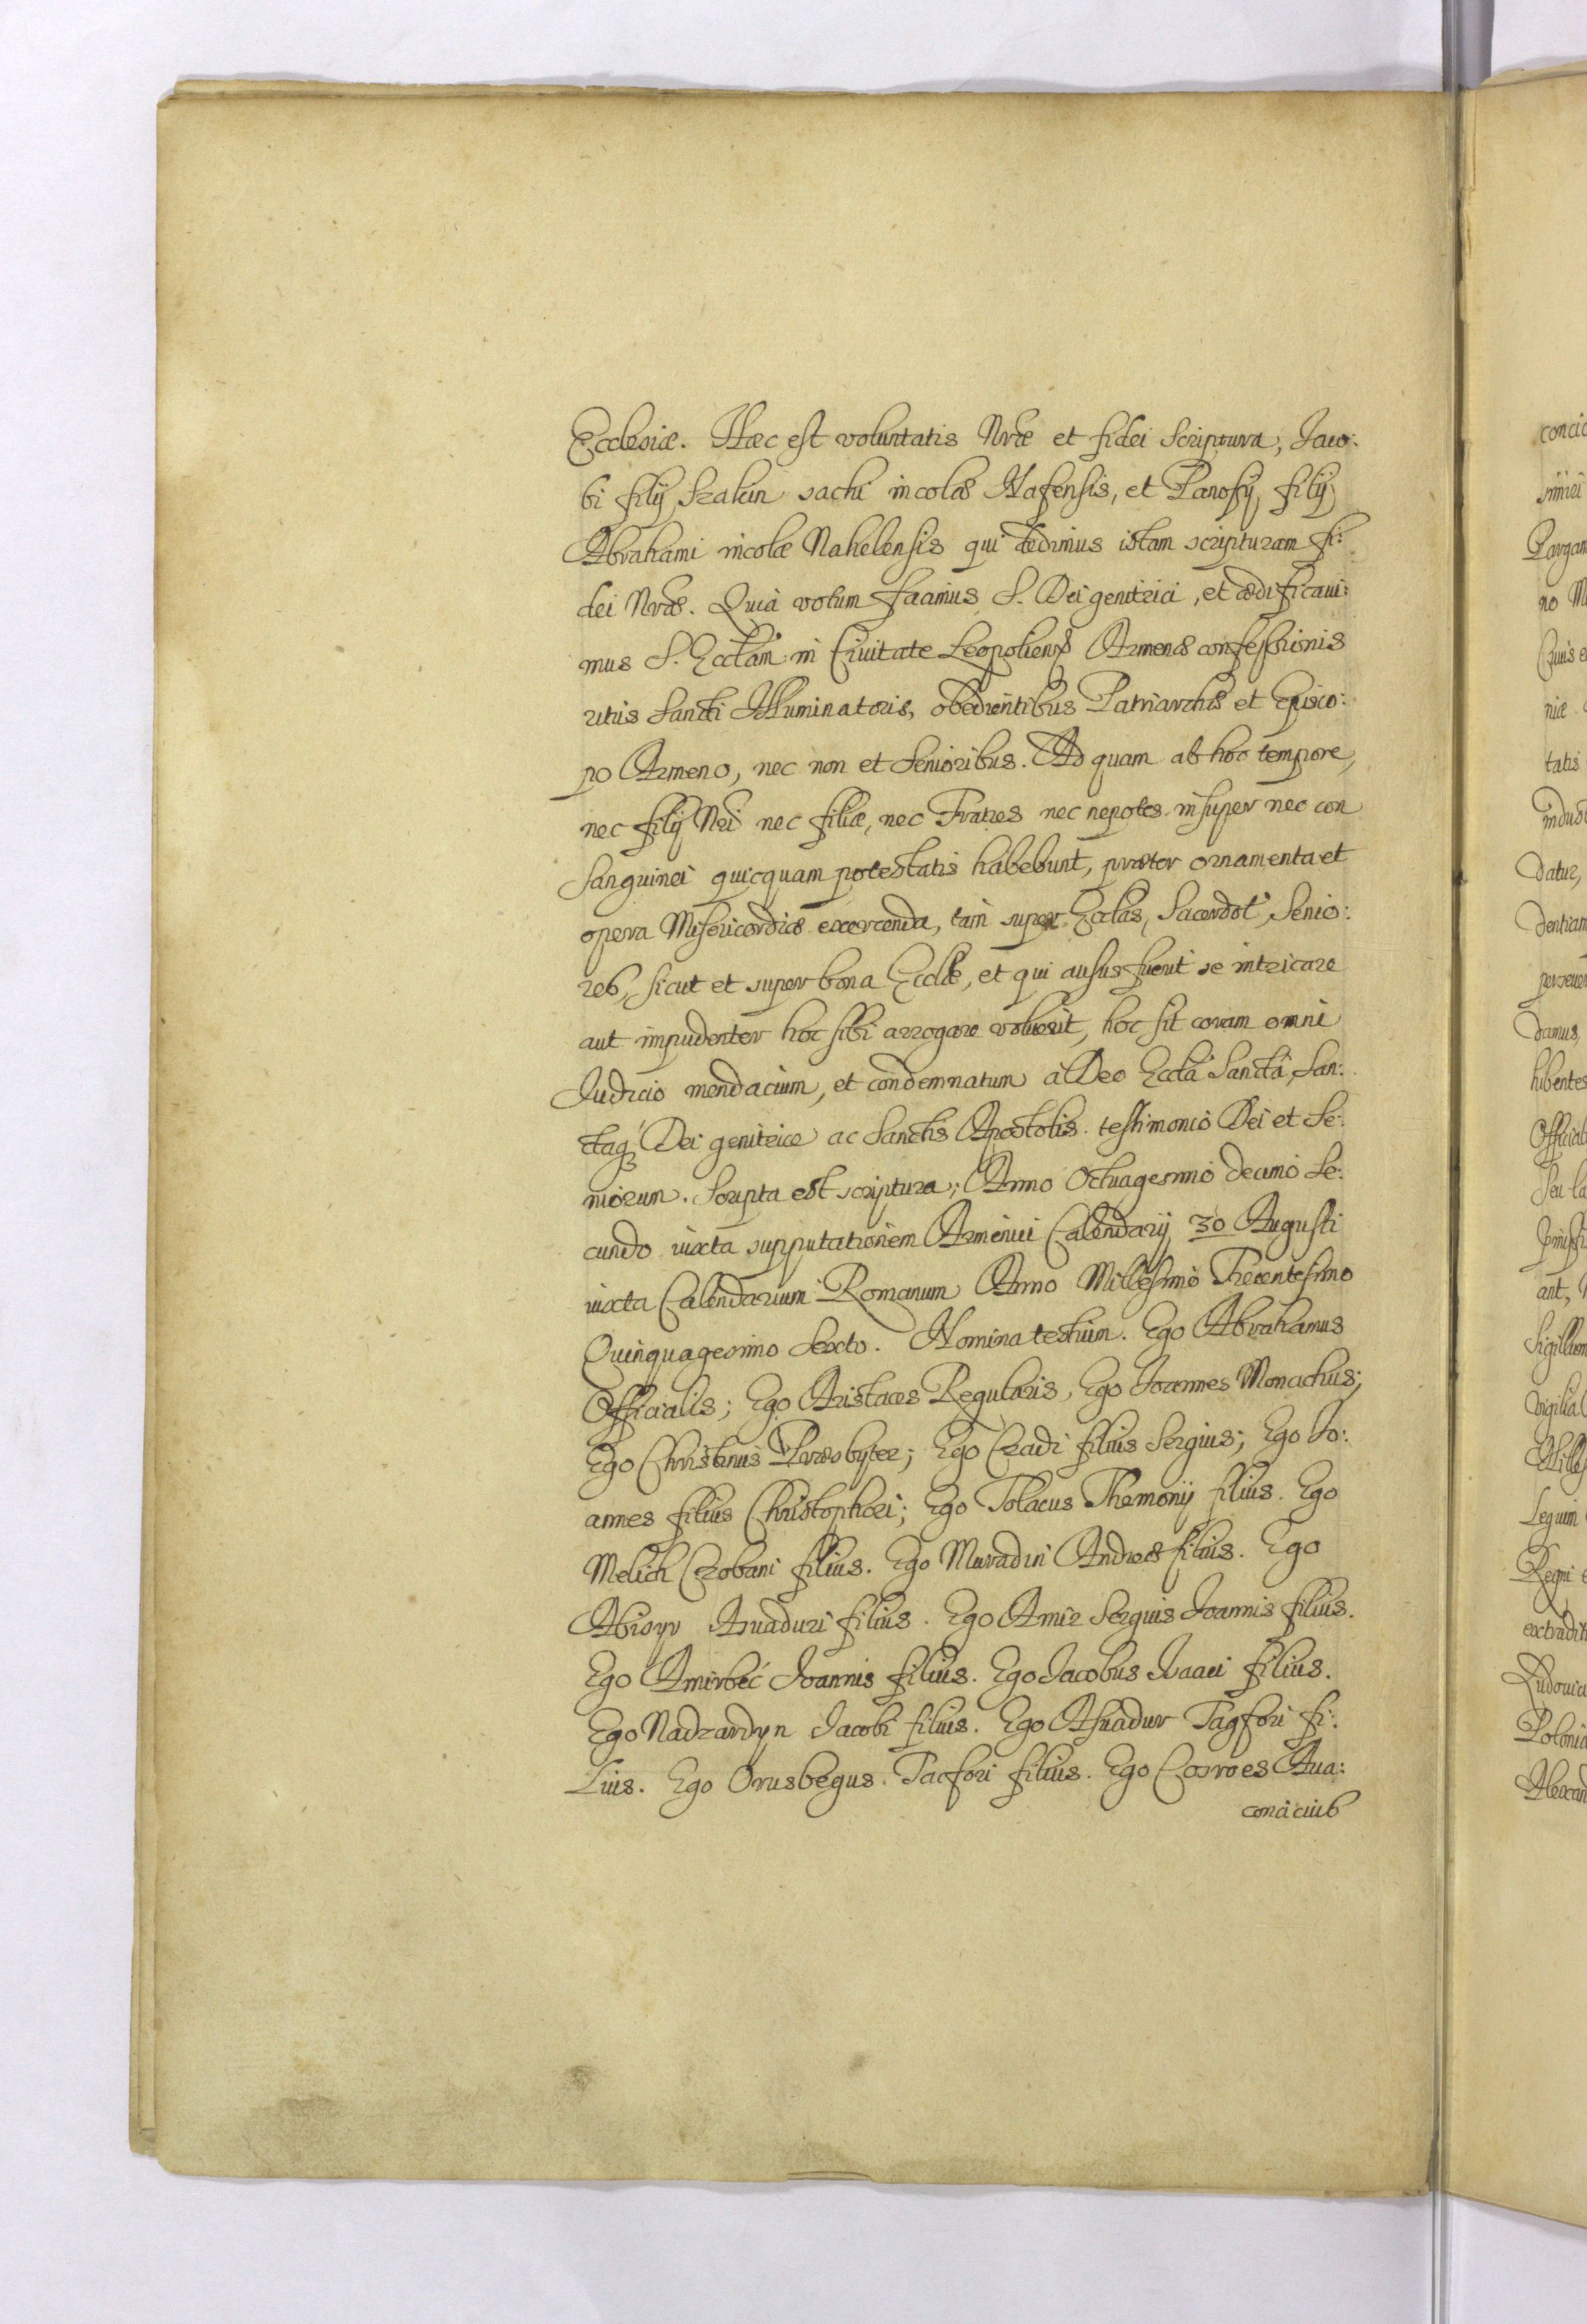 Ecclesiæ. Hæc est voluntatis Nræ et fidei Scriptura, Iaco:
bi filij Szakin sachi incolæ Hafensis, et Panosij, filij
Abrahami incolæ Nahelensis qui dedimus istam scripturam fi:
dei Nræ. Quia votum faamus S. Dei genitrici, et ædificaui:
mus S. Ecclam in Ciuitate Leopoliens Armenæ confessionis
ritus Sancti Illuminatoris, obedientibus Patriarchis et Episco:
po Armeno, nec non et Senioribus. Ad quam ab hoc tempore,
nec filij Nri nec filiæ, nec Fratres nec nepotes insuper nec con
Sanguinei quicquam potestatis habebunt, præter ornamenta et
opera Misericordiæ exercenda, tam super Ecclas, Sacerdot, Senio:
res, sicut et super bona Ecclæ, et qui ausus fuerit se intricare
aut impudenter hoc sibi arrogare voluerit, hoc sit coram omni
Iudicio mendacium, et condemnatum a Deo Eccla Sancta, San:
ctaq Dei genitrice ac Sanctis Apostolis testimonio Dei et Se:
niorum. Scripta est scriptura; Anno Octuagesimo decimo Se:
cundo iuxta supputationem Armenici Calendarij 30 Augusti
iuxta Calendarium Romanum Anno Millesimo Trecentesimo
Quinquagesimo Sexto. Nomina testium. Ego Abrahamus
Officialis; Ego Aristaces Regularis, Ego Ioannes Monachus;
Ego Christinus Præsbyter; Ego Czadi filius Sergius; Ego Io:
annes filius Christophori; Ego Tolacus Themonij filius. Ego
Melich Czobani filius. Ego Muradin Andreæ filius. Ego
Abisyr Asuaduri filius. Ego Amir Serguis Ioannis filius.
Ego Amirbec Ioannis filius. Ego Iacobus Isaaci filius.
Ego Nadzardyn Iacobi filius. Ego Asuadur Tagfori fi:
lius. Ego Orusbegus Tacfori filius. Ego Cosroes Aua:
conciciuis